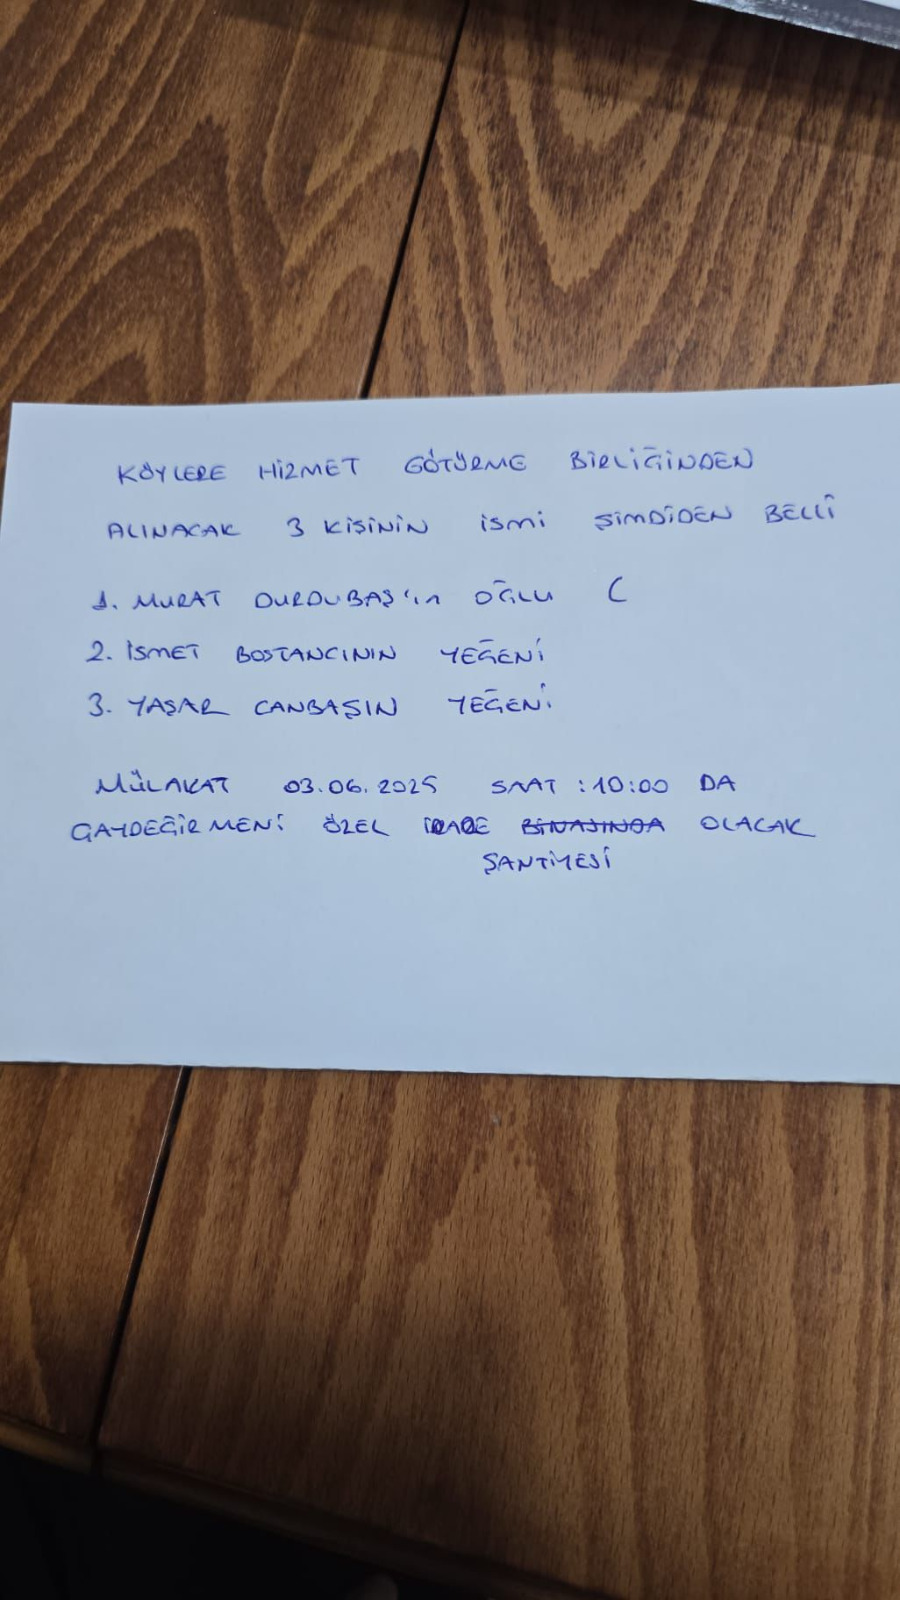 KÖYLERE HİZMET GÖTÜRME BİRLİĞİNDEN
ALINACAK 3 KİŞİNİN İSMİ ŞİMDİDEN BELLİ
1. MURAT DURDUBAŞ'ın OĞLU (
2. İSMET BOSTANCININ YEĞENİ
3. YAŞAR CANBAŞIN YEĞENİ
MÜLAKAT 03.06.2025 SAAT :10:00 DA
GAYDEĞİRMENİ ÖZEL İDARE BİNASINDA OLACAK
ŞANTİYESİ